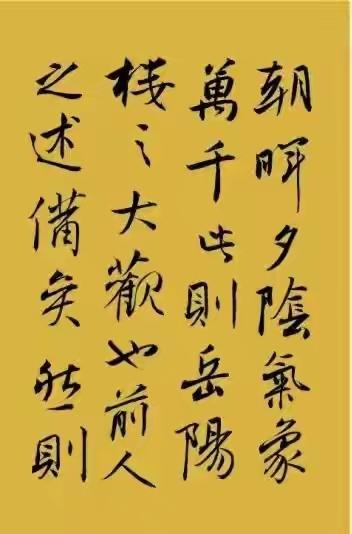 朝暉夕陰氣象
萬千此則岳陽
樓之大觀也前人
之述備矣然則